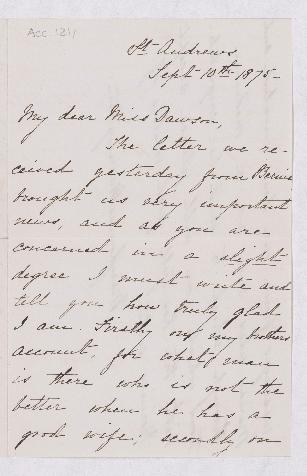 Acc 1211
St. Andrews
Sept 10th 1875-
My dear Miss Dawson,
The letter we re-
ceived yesterday from Bernie
brought us very important
news, and as you are
concerned in a slight
degree I must write and
tell you how truly glad
I am. Firstly on my brothers
account, for what man
is there who is not the
better when he has a
good wife; secondly on